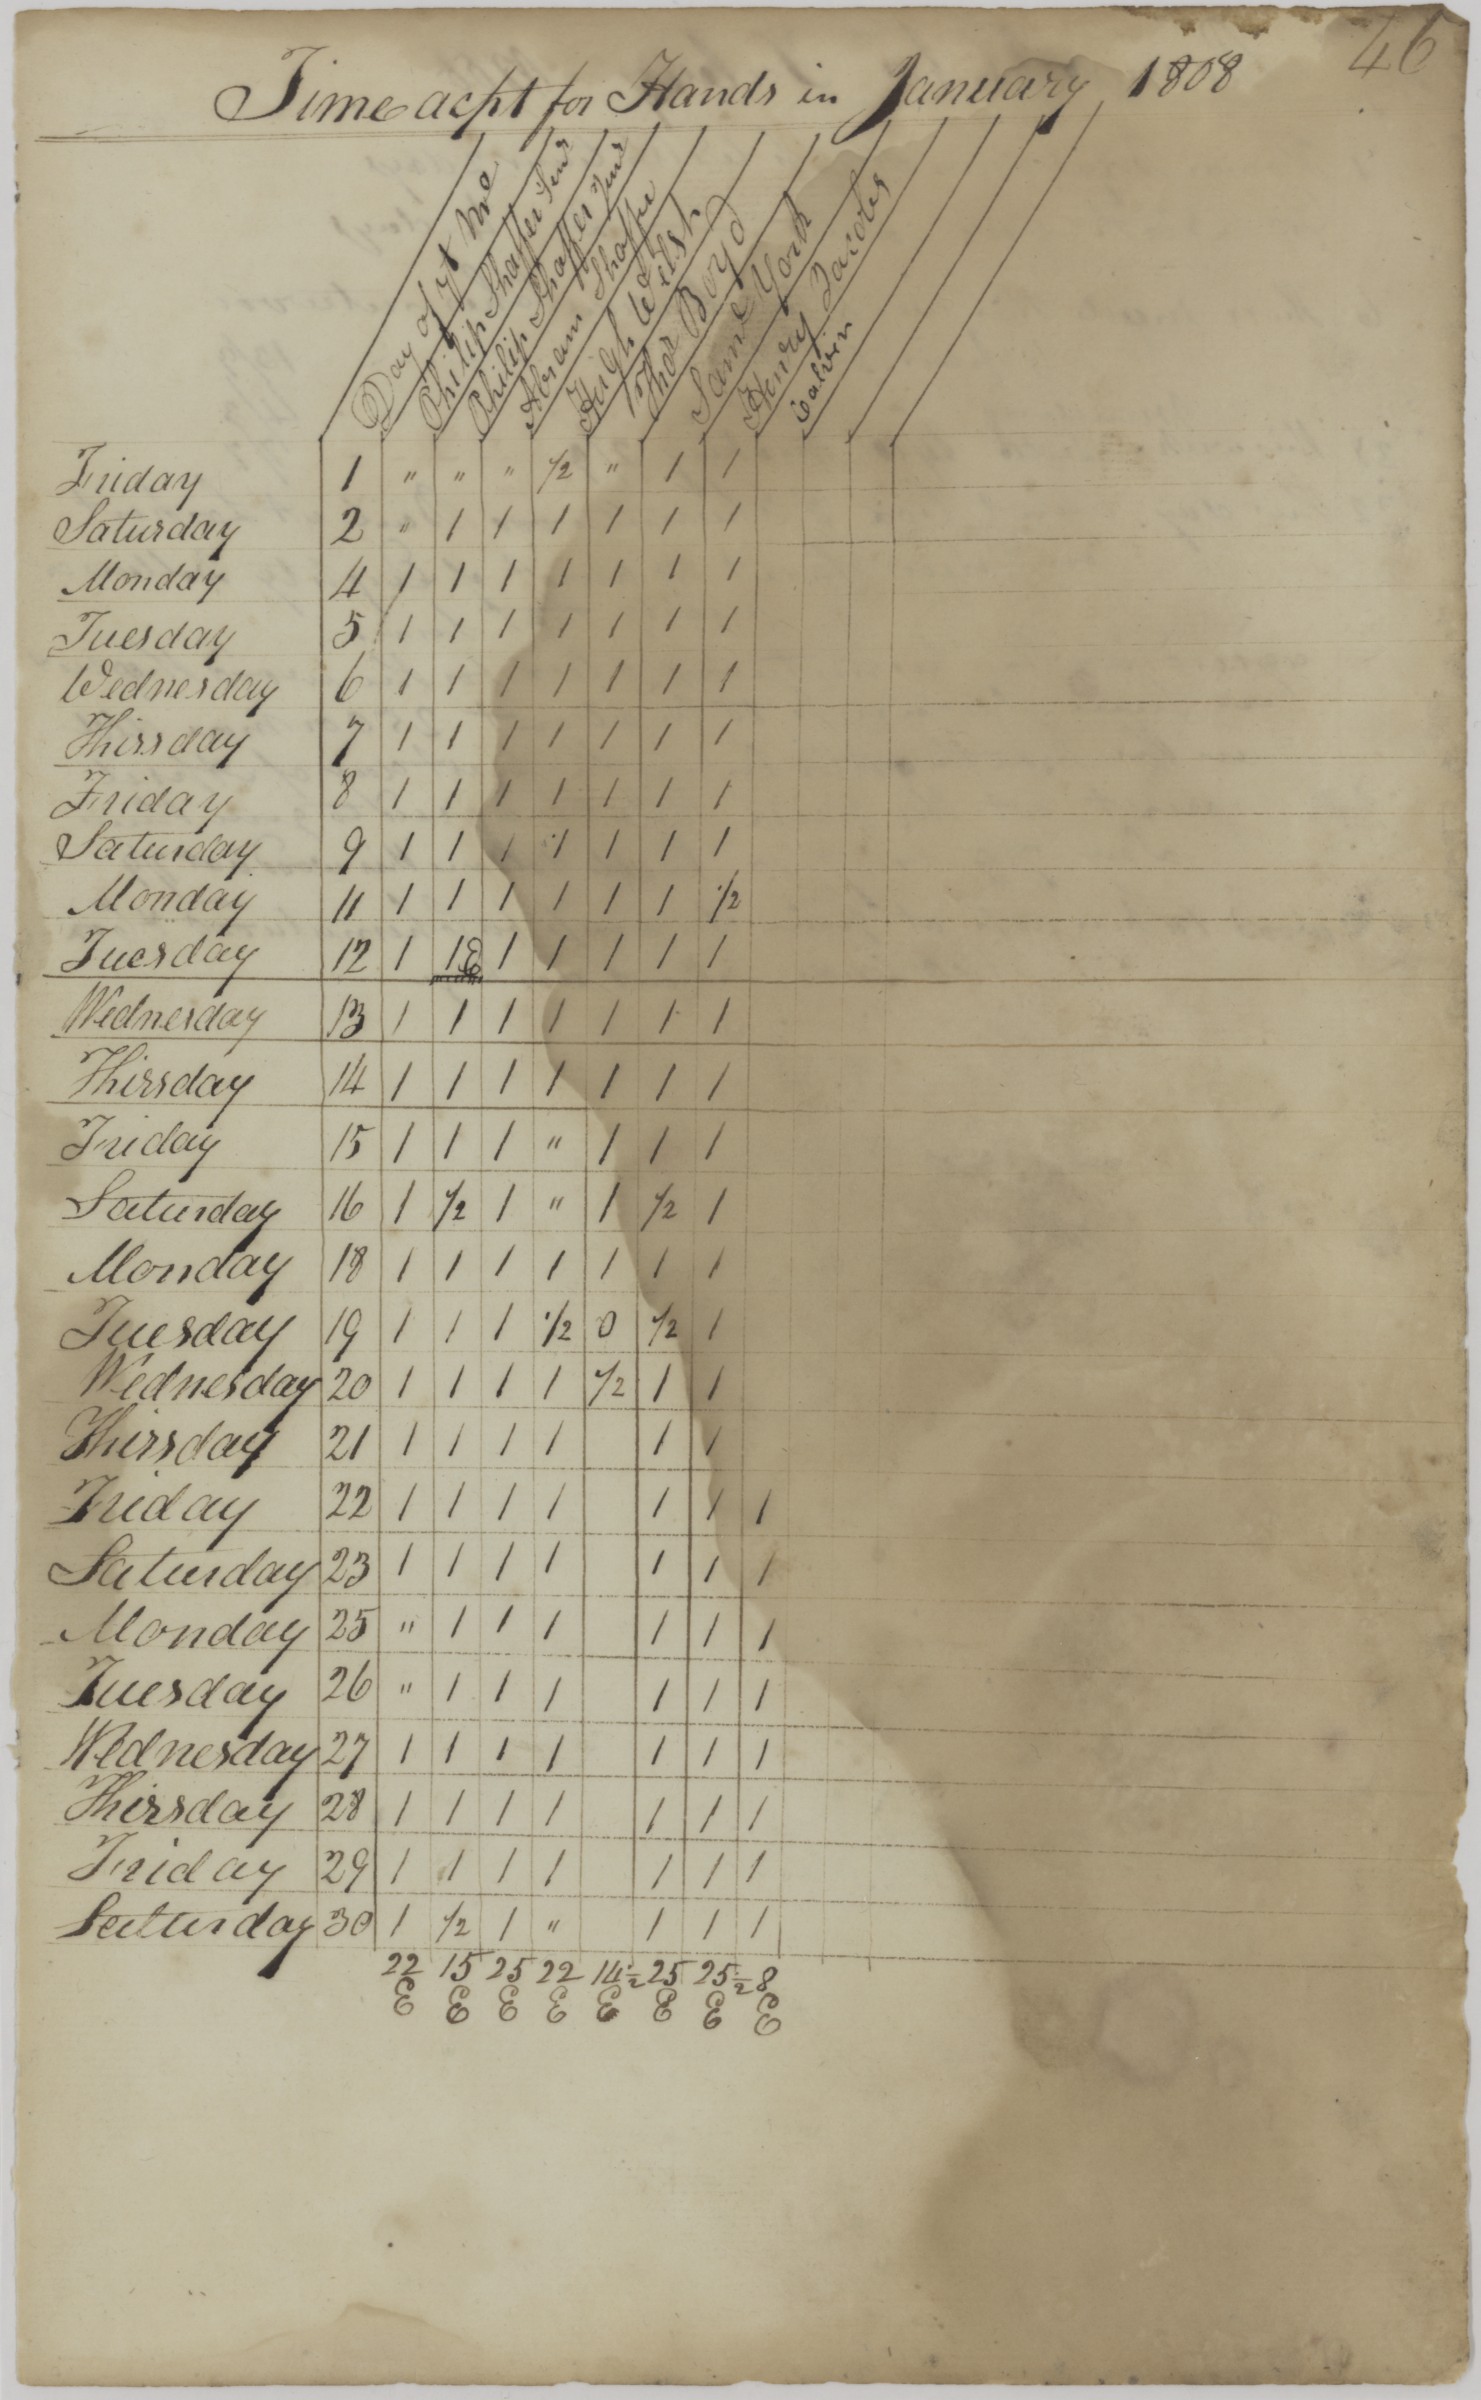 46
Time acpt for Hands in January 1808
Day of ye Mo
Philip Shaffer Senr
Philip Shaffer Junr
Abram Shaffer
Hugh Welsh
Thos Boyd
Saml York
Henry Jacobs
Calvin
Friday 1 " " " 1/2 " 1 1
Saturday 2 " 1 1 1 1 1 1
Monday 4 1 1 1 1 1 1 1
Tuesday 5 1 1 1 1 1 1 1
Wednesday 6 1 1 1 1 1 1 1
Thirsday 7 1 1 1 1 1 1 1
Friday 8 1 1 1 1 1 1 1
Saturday 9 1 1 1 1 1 1 1
Monday 11 1 1 1 1 1 1 1/2
Tuesday 12 1 1 E 1 1 1 1 1
Wednesday 13 1 1 1 1 1 1 1
Thirsday 14 1 1 1 1 1 1 1
Friday 15 1 1 1 " 1 1 1
Saturday 16 1 1/2 1 " 1 1/2 1
Monday 18 1 1 1 1 1 1 1
Tuesday 19 1 1 1 1/2 0 1/2 1
Wednesday 20 1 1 1 1 1/2 1 1
Thirsday 21 1 1 1 1 1 1
Friday 22 1 1 1 1 1 1 1
Saturday 23 1 1 1 1 1 1 1
Monday 25 " 1 1 1 1 1 1
Tuesday 26 " 1 1 1 1 1 1
Wednesday 27 1 1 1 1 1 1 1
Thirsday 28 1 1 1 1 1 1 1
Friday 29 1 1 1 1 1 1 1
Satturday 30 1 1/2 1 " 1 1 1
22 15 25 22 14 1/2 25 25 1/2 8
E E E E E E E E